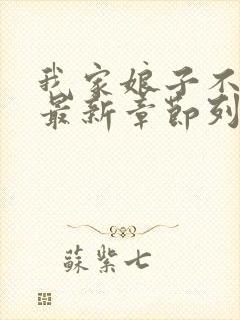 我家娘子不
最新章節列
蘇紫七